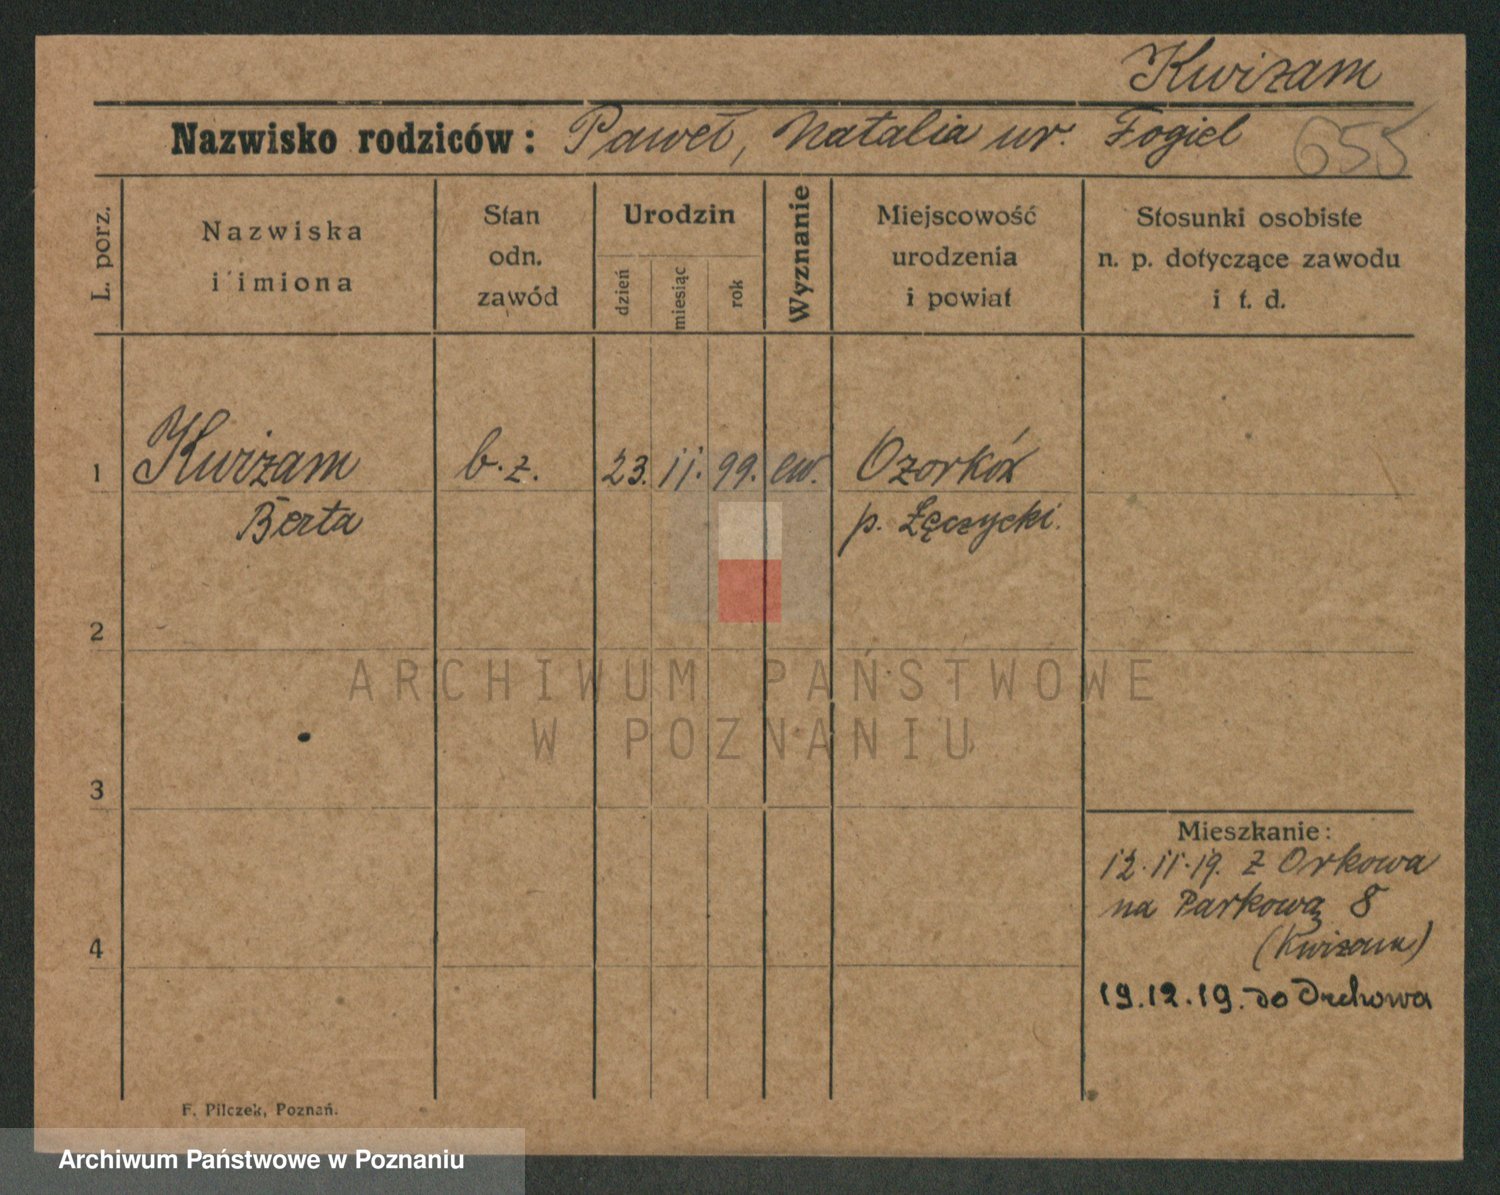 Kwizam
Nazwisko rodziców: Paweł, Natalia ur. Fogiel 655
L. porz.
Nazwiska
i imiona
Stan
odn.
zawód
Urodzin
dzień
miesiąc
rok
Wyznanie
Miejscowość
urodzenia
i powiat
Stosunki osobiste
n. p. dotyczące zawodu
i t. d.
1 Kwizam b. z. 23. 11. 99. ew. Ozorków
Berta p. Łęczycki.
2
ARCHIWUM PAŃSTWOWE
W POZNANIU
3
Mieszkanie:
12.11.19. z Orkowa
na Parkową 8
4
(Kwizam)
19.12.19. do Orchowa
F. Pilczek, Poznań.
Archiwum Państwowe w Poznaniu